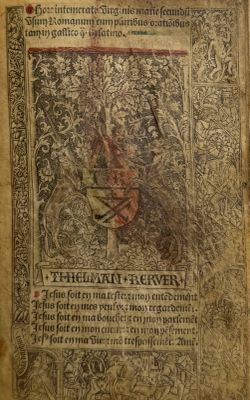 Hore intemerate Virginis marie secundū
Vsum Romanum cum pluribus orationibus
tam in gallico q̄ in latino.
THIELMAN KERVER
Jesus soit en ma teste et mon entedement
Jesus soit en mes yeulx et mon regardemēt.
Jesus soit en ma bouche et en mon parlemēt
Jesus soit en mon cueur et en mon pēsement.
Jesus soit en ma vie et mō trespassemēt. Amē.